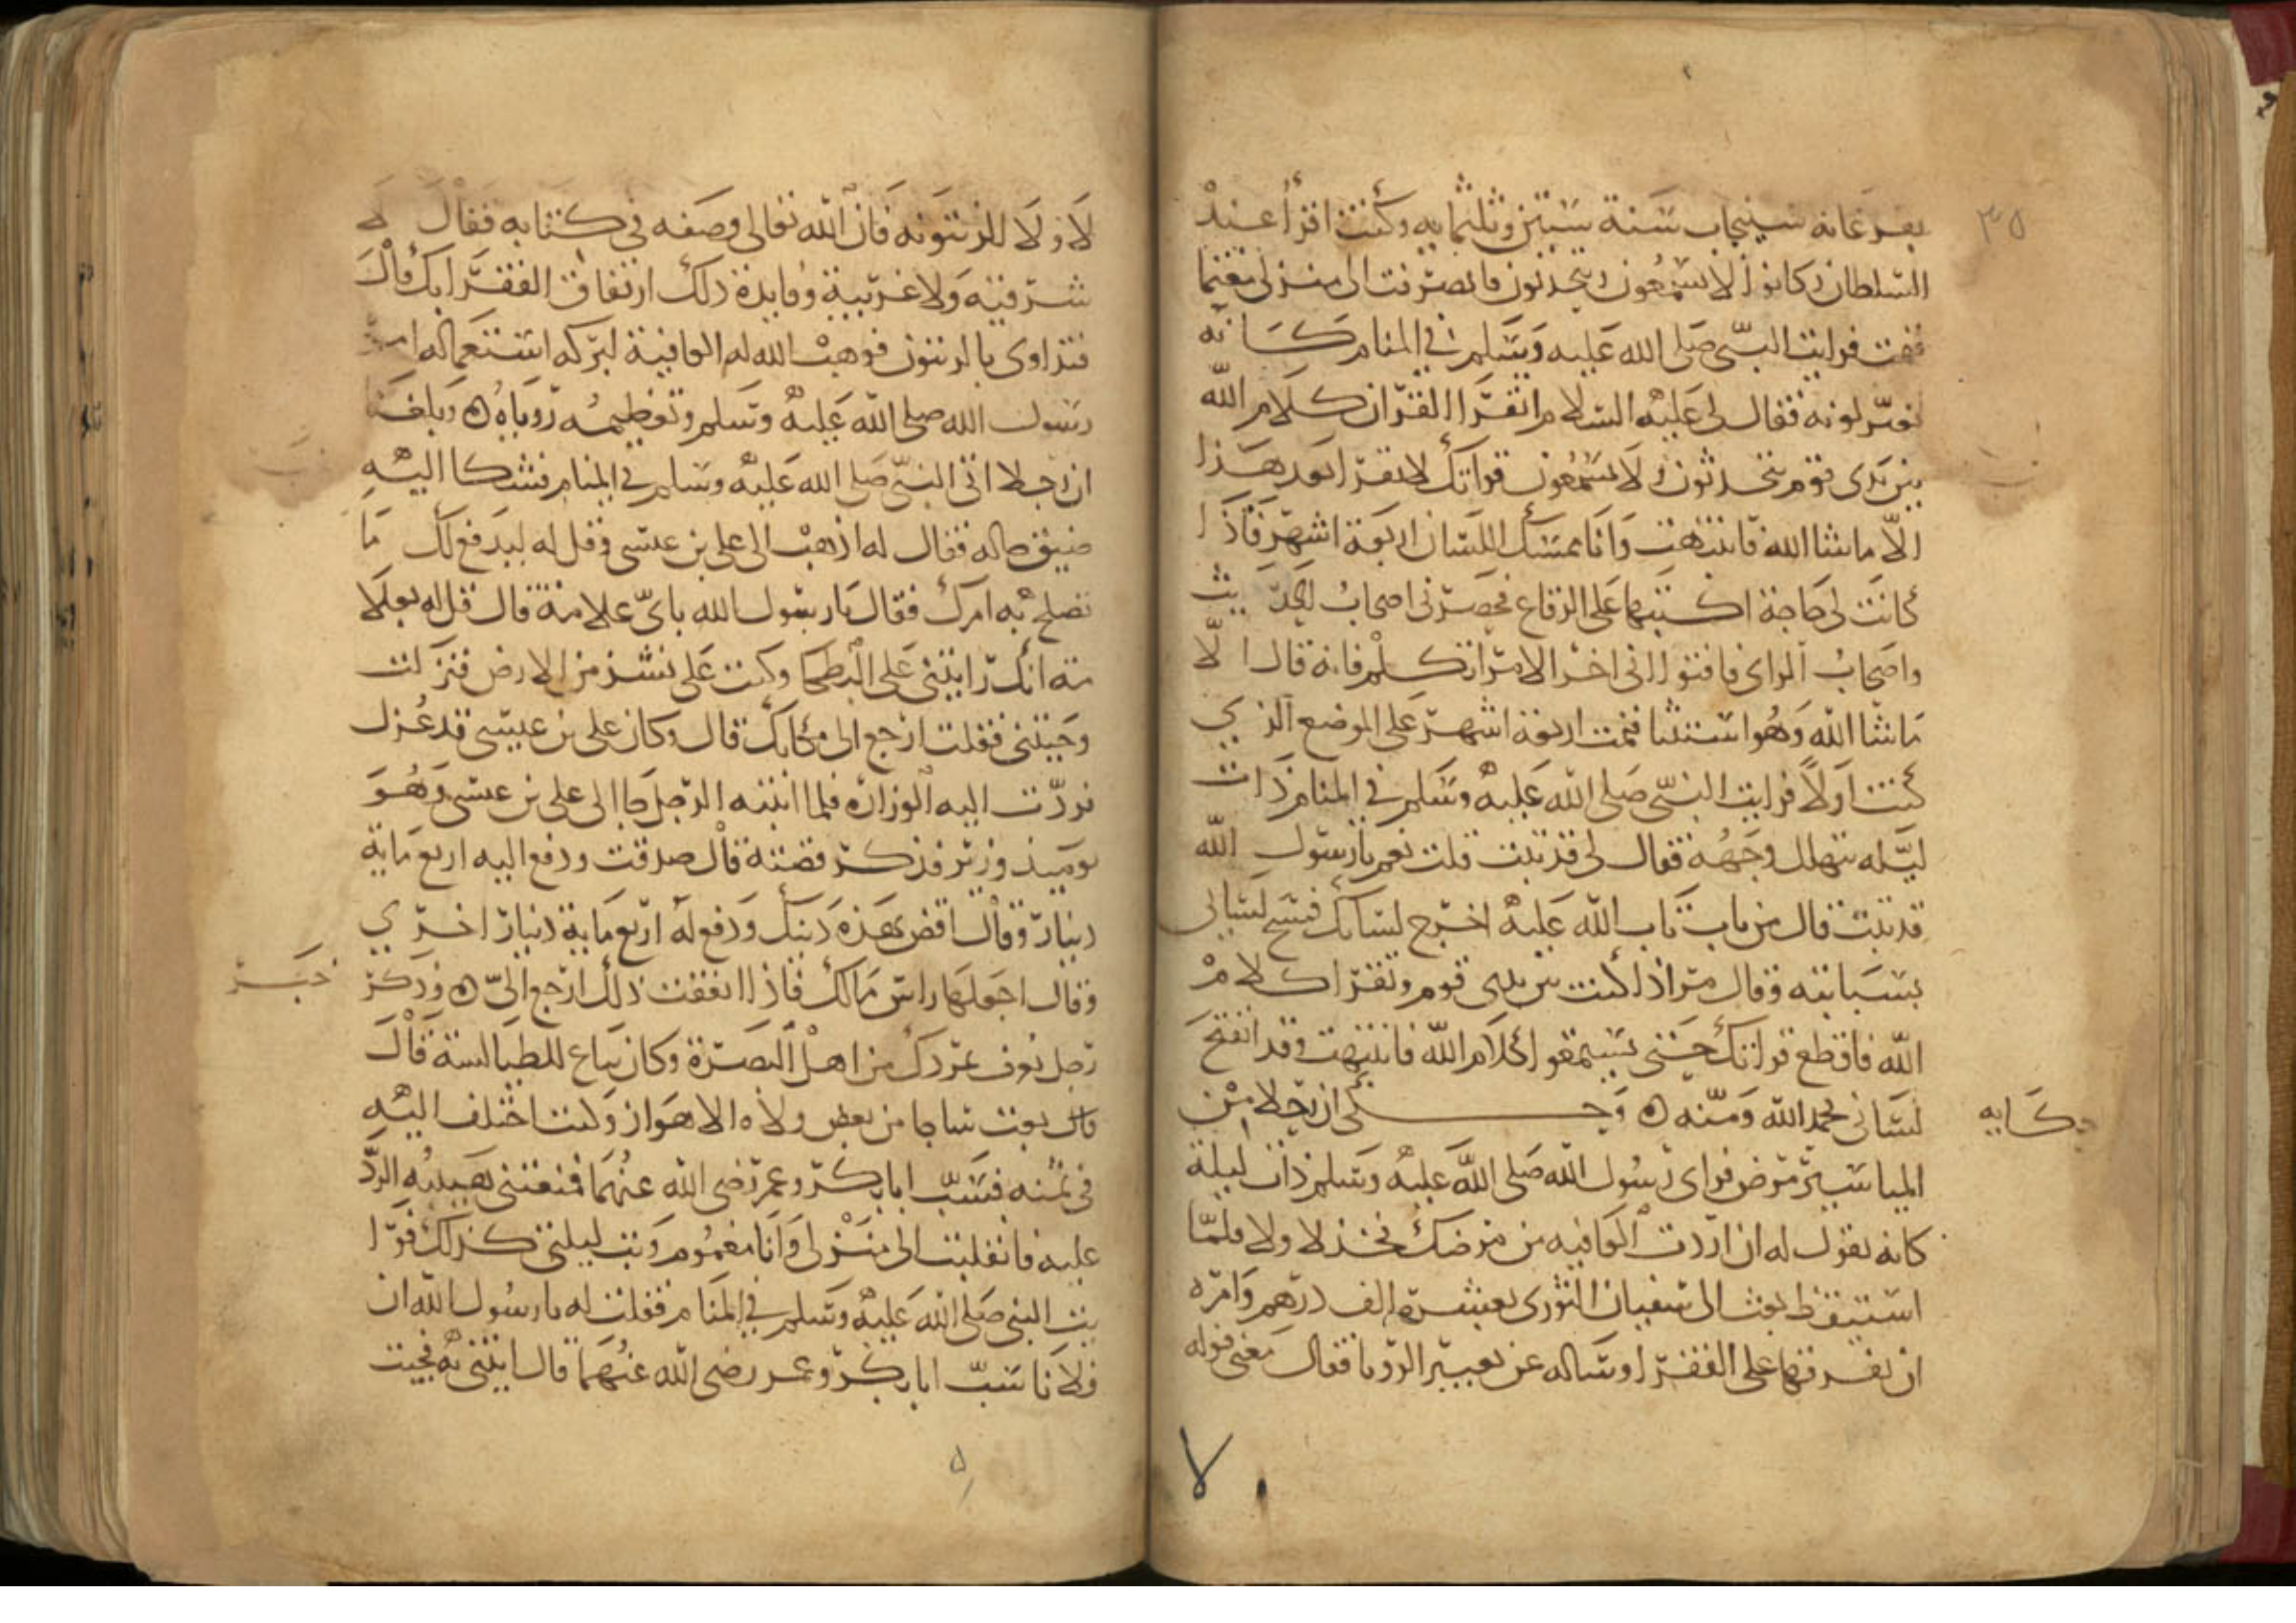 ٣٥
بفرغانه سينجاب سنة ستين وثلثمايه وكنت اقرأ عند
السلطان وكانوا لا يسمعون ويتحدثون فانصرفت الى منزلى مغتما
فنمت فرايت النبى صلى الله عليه وسلم فى المنام كانه
تغير لونه فقال لى عليه السلام اتقرا القران كلام الله
بين يدى قوم يتحدثون ولا يسمعون قراتك لا تقرا بعد هذا
الا ما شا الله فانتبهت وانا ممسك اللسان اربعة اشهر فاذا
كانت لى حاجة اكتبها على الرقاع فحضرنى اصحاب الحديث
واصحاب الراى فافتوا انى اخر الامر اتكلم فانه قال الا
ما شا الله وهو استثنا فنمت اربعة اشهر على الموضع الذي
كنت اولا فرايت النبى صلى الله عليه وسلم فى المنام ذات
ليله يتهلل وجهه فقال لى قد تبت قلت نعم يا رسول الله
قد تبت قال من تاب تاب الله عليه اخرج لسانك فمسح لسانى
بسبابته وقال مر اذا كنت بين يدى قوم وتقرا كلام
الله فاقطع قراتك حتى يسمعوا كلام الله فانتبهت وقد انفتح
لسانى بحمد الله ومنه ٥ وحكى ان رجلا من
حكايه
المياسير مرض فراى رسول الله صلى الله عليه وسلم ذات ليلة
كانه يقول له ان اردت العافيه من مرضك فخذ لا ولا فلما
استيقظ بعث الى سفيان الثورى بعشرة الف درهم وامره
ان يفرقها على الفقرا وساله عن تعبير الرويا فقال معنى قوله
لا ولا للزيتونه فان الله تعالى وصفه فى كتابه فقال لا
شرقيه ولا غربية وفايدة ذلك ارتفاق الفقرا بك قال
فتداوى بالزيتون فوهب الله له العافية لبركه استعماله امر
رسول الله صلى الله عليه وسلم وتعظيمه روياه ٥ وبلغنا
ان رجلا اتى النبى صلى الله عليه وسلم فى المنام فشكا اليه
ضيق حاله فقال له اذهب الى على بن عيسى وقل له ليدفع لك ما
تصلح به امرك فقال يا رسول الله باى علامة قال قل له بعلا
مة انك رايتنى على البطحا وكنت على نشز من الارض فنزلت
وجيتنى فقلت ارجع الى مكانك قال وكان على بن عيسى قد عزل
فردت اليه الوزاره فلما انتبه الرجل جا الى على بن عيسى وهو
يوميذ وزير فذكر قصته قال صدقت ودفع اليه اربع ماية
دينار وقال اقض بهذه دينك ودفع له اربع ماية دينار اخري
وقال اجعلها راس مالك فاذا انفقت ذلك ارجع الى ٥ وذكر
خبر
رجل يعرف بمردك من اهل البصرة وكان بياع للطيالسة قال
قال بعت ساجا من بعض ولاه الاهواز وكنت اختلف اليه
فى ثمنه فسب ابا بكر وعمر رضى الله عنهما فمنعتنى هيبته الرد
عليه فانقلبت الى منزلى وانا مغموم وبت ليلتى كذلك فرا
يت النبى صلى الله عليه وسلم فى المنام فقلت له يا رسول الله ان
فلانا سب ابا بكر وعمر رضى الله عنهما قال ايتنى به فجيت